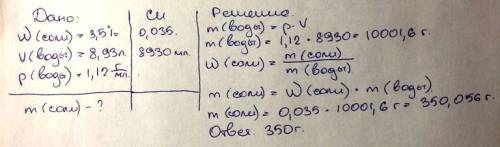 Дано:
W(соли)=3,5%
V(воды)=8,93л.
ρ(воды)=1,12 г/мл
m(соли)-?
СИ
0,035.
8930 мл.
Решение:
m(воды)=ρ·V
m(воды)=1,12·8930=10001,6 г.
W(соли)=m(соли)/m(воды)
m(соли)=W(соли)·m(воды)
m(соли)=0,035·10001,6 г=350,056 г.
Ответ: 350г.